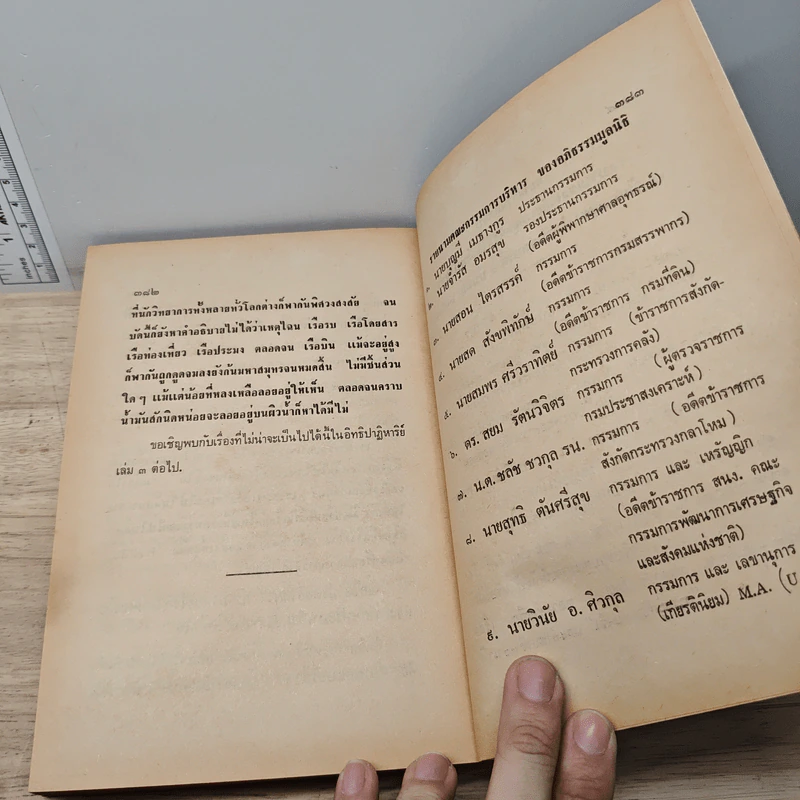 ๓๘๒
ที่นักวิทยาการทั้งหลายทั่วโลกต่างก็พากันพิศวงสงสัย จน
บัดนี้ก็ยังหาคำอธิบายไม่ได้ว่าเหตุไฉน เรือรบ เรือโดยสาร
เรือท่องเที่ยว เรือประมง ตลอดจน เรือบิน แม้จะอยู่สูง
ก็พากันถูกดูดจมลงยังก้นมหาสมุทรจนหมดสิ้น ไม่มีชิ้นส่วน
ใด ๆ แม้แต่น้อยที่หลงเหลือลอยอยู่ให้เห็น ตลอดจนคราบ
น้ำมันสักนิดหน่อยจะลอยอยู่บนผิวน้ำก็หาได้มีไม่
ขอเชิญพบกับเรื่องที่ไม่น่าจะเป็นไปได้นี้ในอิทธิปาฏิหาริย์
เล่ม ๓ ต่อไป.
๓๘๓
รายนามคณะกรรมการบริหาร ของอภิธรรมมูลนิธิ
๑. นายบุญมี เมธางกูร ประธานกรรมการ
๒. นายจำรัส อมรสุข รองประธานกรรมการ
(อดีตผู้พิพากษาศาลอุทธรณ์)
๓. นายสอน ไตรสรรค์ กรรมการ
(อดีตข้าราชการกรมสรรพากร)
๔. นายสด สังขพิทักษ์ กรรมการ
(อดีตข้าราชการ กรมที่ดิน)
๕. นายสมพร ศรีวราทิตย์ กรรมการ (ข้าราชการสังกัด-
กระทรวงการคลัง)
๖. ดร. สยม รัตนวิจิตร กรรมการ (ผู้ตรวจราชการ
กรมประชาสงเคราะห์)
๗. น.ต. ชลัช ชวกุล รน. กรรมการ (อดีตข้าราชการ
สังกัดกระทรวงกลาโหม)
๘. นายสุทธิ ตันศรีสุข กรรมการ และ เหรัญญิก
(อดีตข้าราชการ สนง. คณะ
กรรมการพัฒนาการเศรษฐกิจ
และสังคมแห่งชาติ)
๙. นายวินัย อ. ศิวกุล กรรมการ และ เลขานุการ
(เกียรตินิยม) M.A. (U